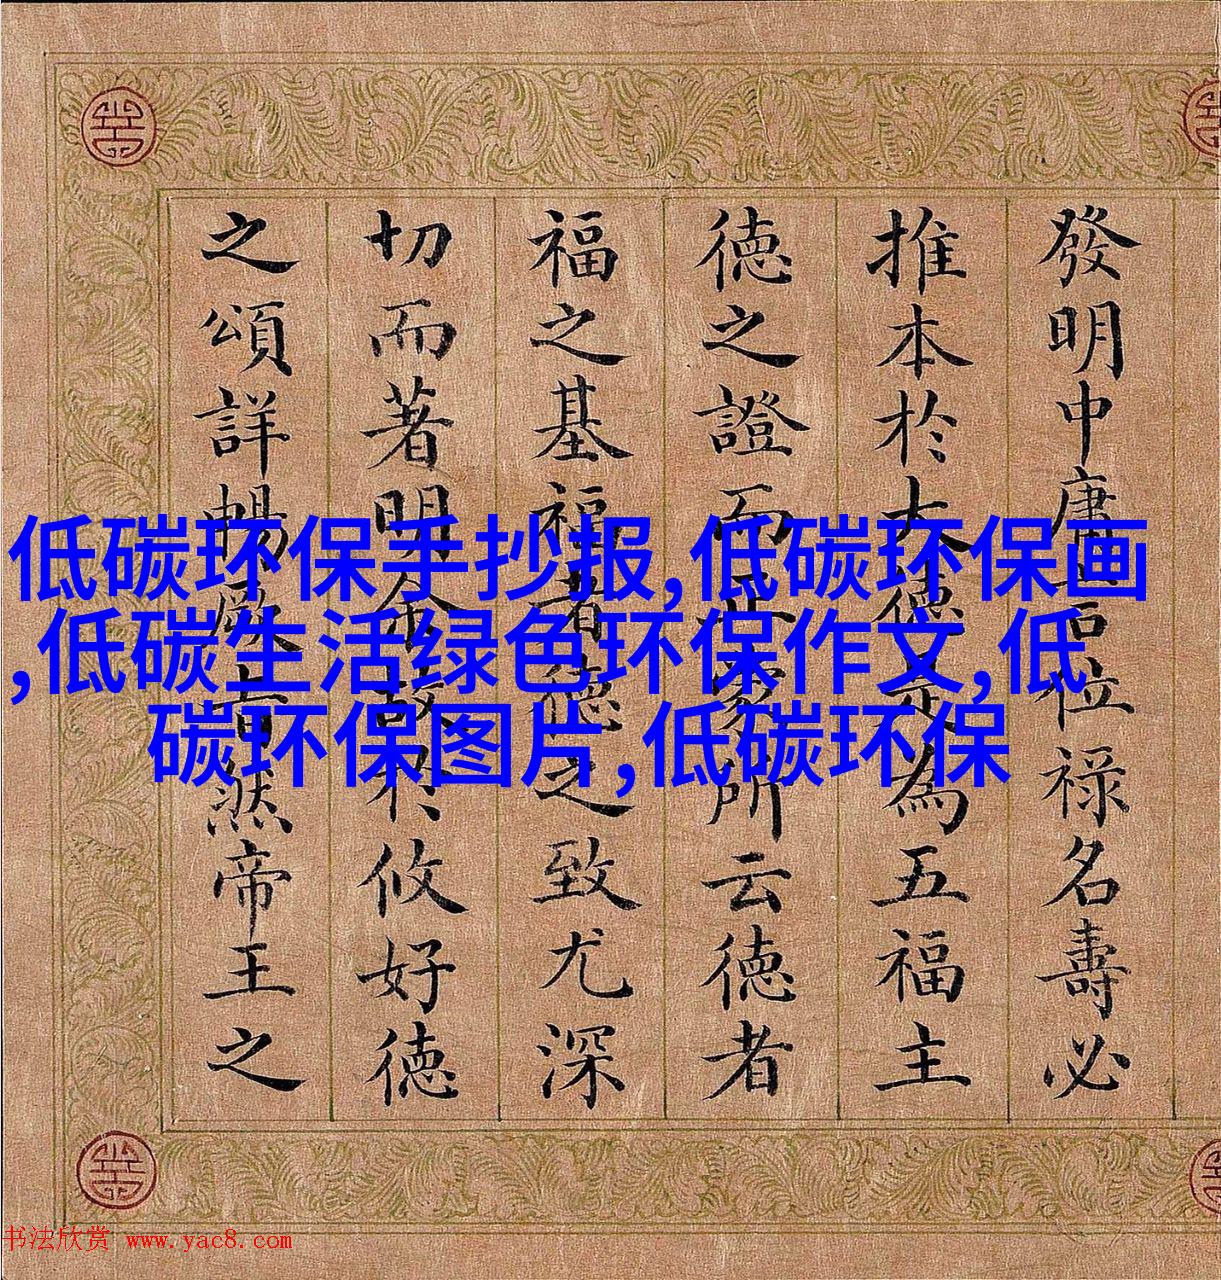 發明中庸言位祿名壽必
推本於大德是為五福主
德之證而正蒙所云德者
福之基福者德之致尤深
切而著明余故於攸好德
之頌詳暢厥旨然帝王之
低碳环保手抄报,低碳环保画
,低碳生活绿色环保作文,低
碳环保图片,低碳环保
书法欣赏 www.yac8.com